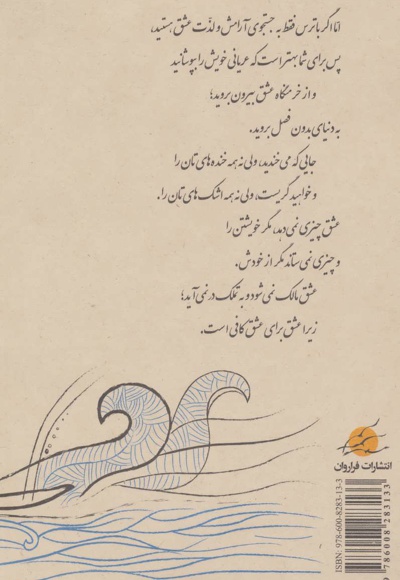 امّا اگر با ترس فقط به جستجوی آرامش و لذّت عشق هستید،
پس برای شما بهتر است که عریانی خویش را بپوشانید
و از خرمنگاه عشق بیرون بروید؛
به دنیای بدون فصل بروید.
جایی که می خندید، ولی نه همه خنده های تان را
و خواهید گریست، ولی نه همه اشک های تان را.
عشق چیزی نمی دهد، مگر خویشتن را
و چیزی نمی ستاند مگر از خودش.
عشق مالک نمی شود و به تملک در نمی آید؛
زیرا عشق برای عشق کافی است.
انتشارات فراروان
ISBN: 978-600-8283-13-3
9 786008 283133